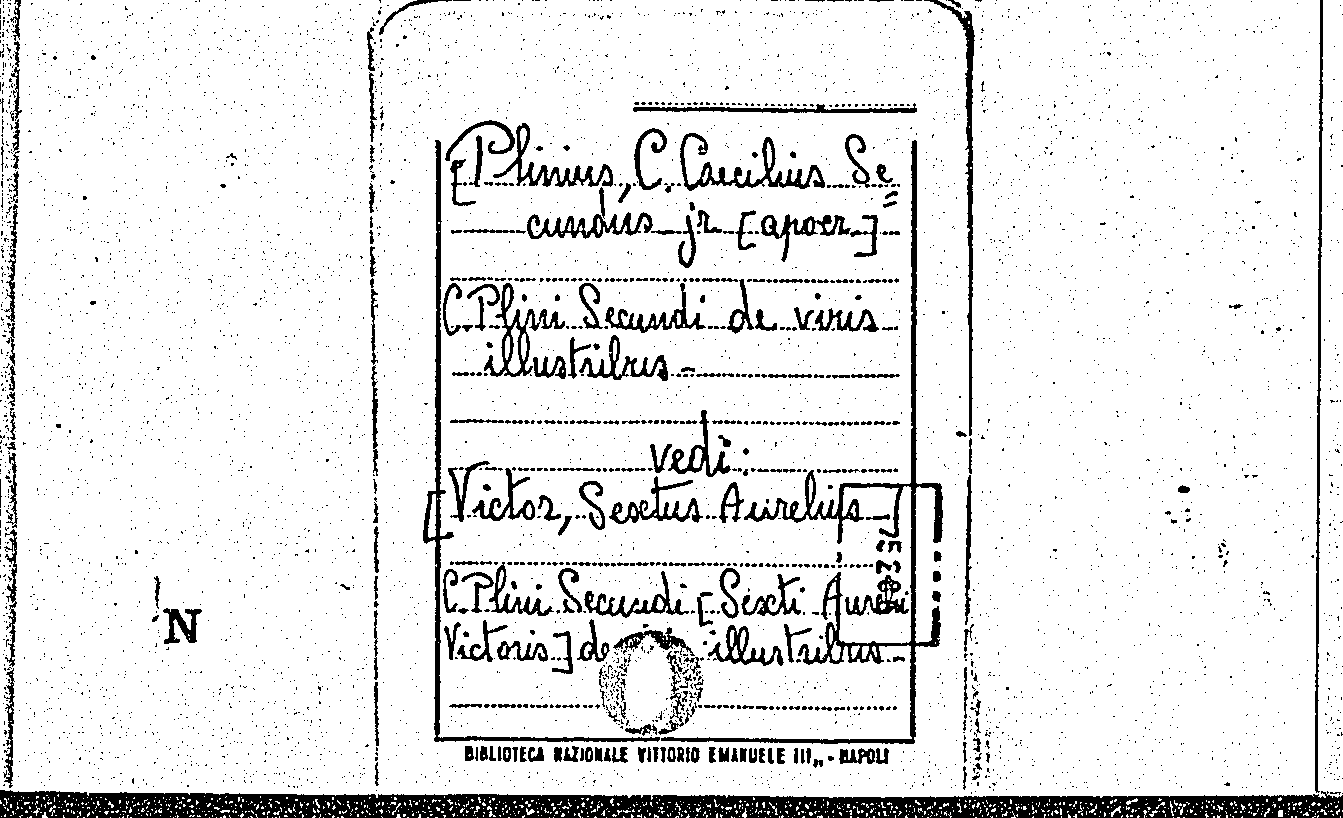 [Plinius, C. Caecilius Se=
cundus jr [apocr.]
C. Plini Secundi de viris
illustribus -
vedi:
[Victor, Sextus Aurelius]
C. Plini Secundi [Sexti Aureli
Victoris] de illustribus -
N
BIBLIOTECA NAZIONALE VITTORIO EMANUELE III„ - NAPOLI